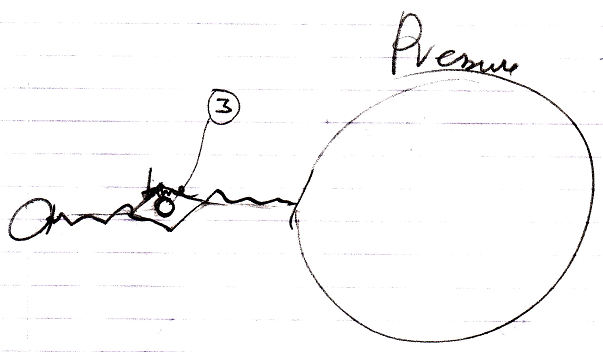 Pressure
3